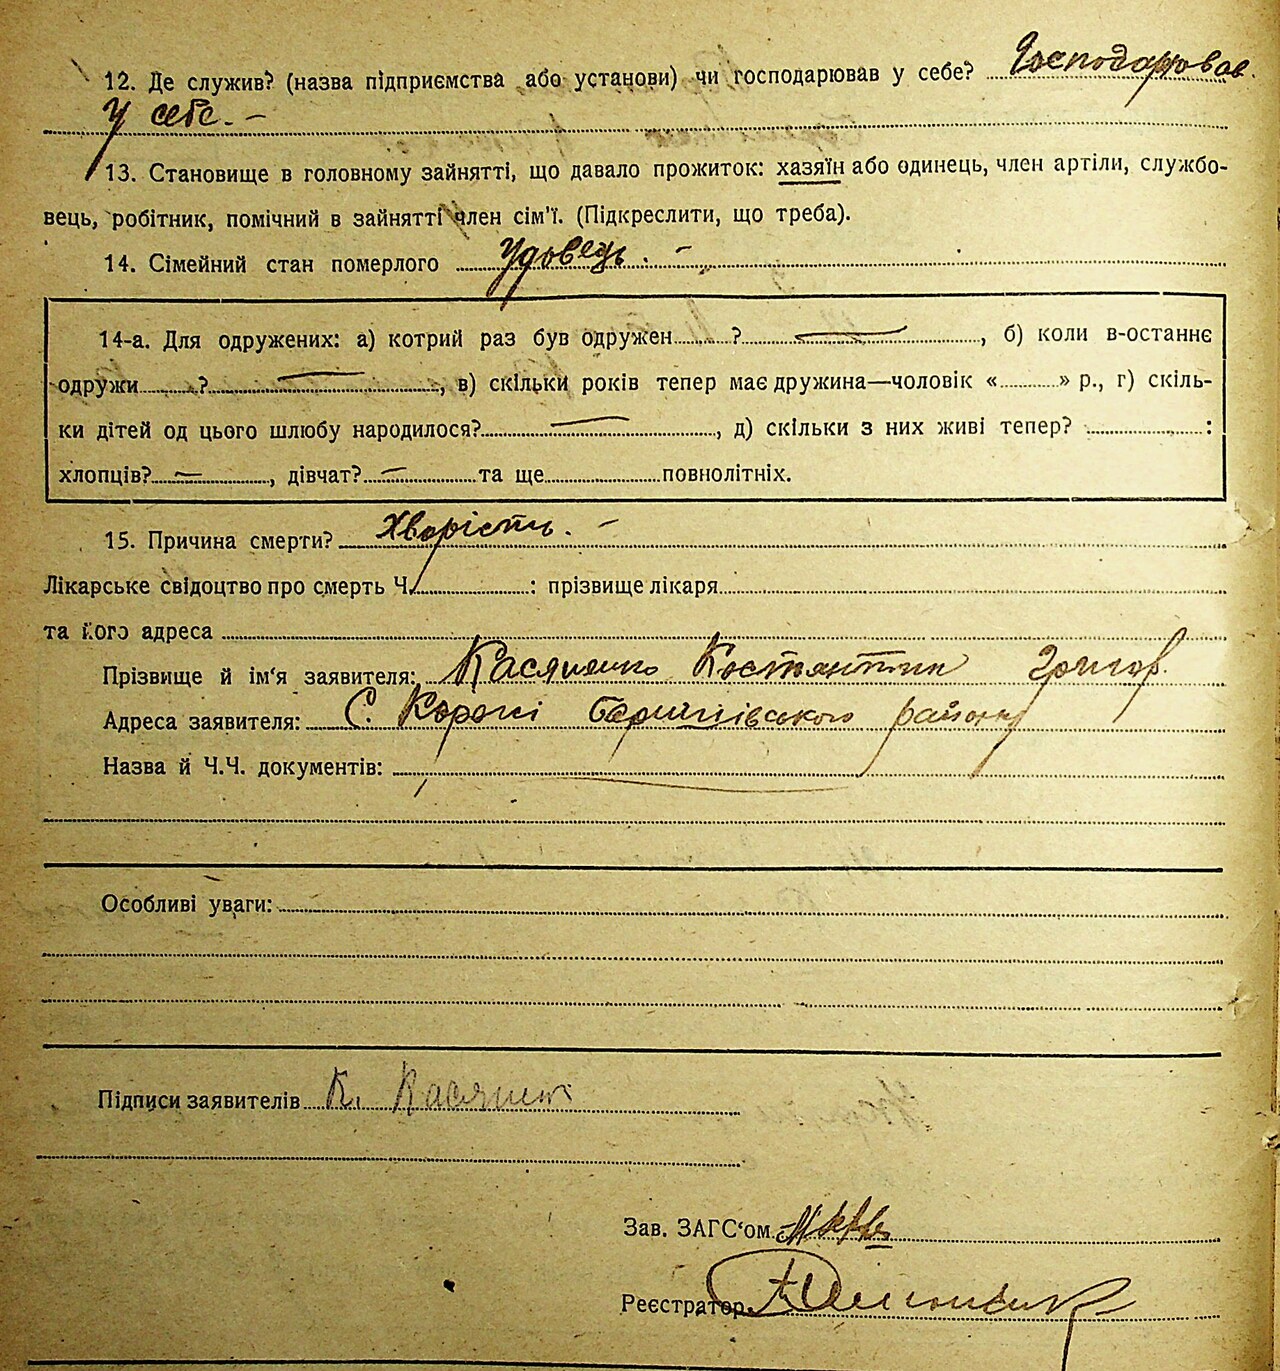 12. Де служив? (назва підприємства або установи) чи господарював у себе? Господарював
у себе. –
13. Становище в головному зайнятті, що давало прожиток: хазяїн або одинець, член артіли, службо-
вець, робітник, помічний в зайнятті член сім'ї. (Підкреслити, що треба).
14. Сімейний стан померлого Удовець. –
14-а. Для одружених: а) котрий раз був одружен ? , б) коли в-останнє
одружи ? , в) скільки років тепер має дружина—чоловік « » р., г) скіль-
ки дітей од цього шлюбу народилося? , д) скільки з них живі тепер? :
хлопців? — , дівчат? — та ще повнолітніх.
15. Причина смерти? Хворість. –
Лікарське свідоцтво про смерть Ч. : прізвище лікаря
та його адреса
Прізвище й ім'я заявителя: Касяненко Костянтин Григор.
Адреса заявителя: С. Коржі Баришівського району
Назва й Ч.Ч. документів:
Особливі уваги:
Підписи заявителів К.
Зав. ЗАГС'ом
Реєстратор